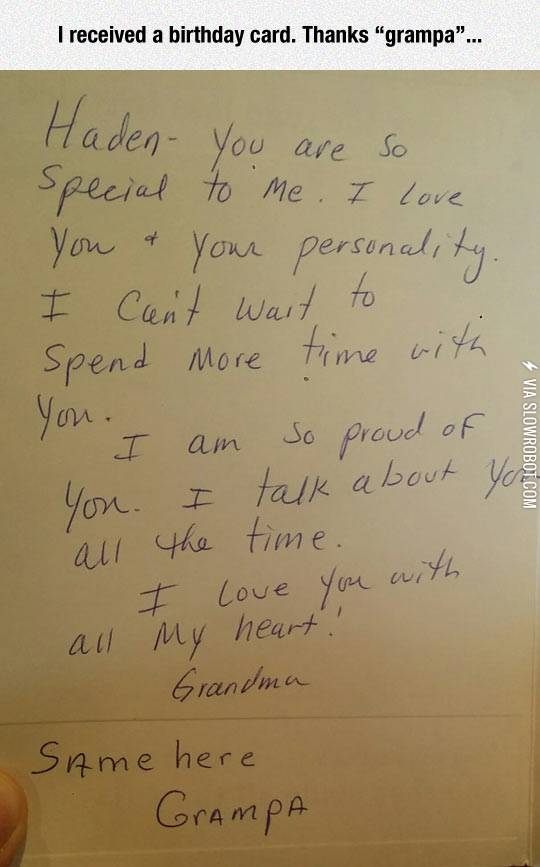 I received a birthday card. Thanks “grampa”...
Haden- You are so
Special to Me. I love
You & Your personality.
I Can't Wait to
Spend More time with
You.
I am so proud of
You. I talk about You
all the time.
I Love You with
all My heart!
Grandma
Same here
Grampa
VIA SLOWROBOT.COM